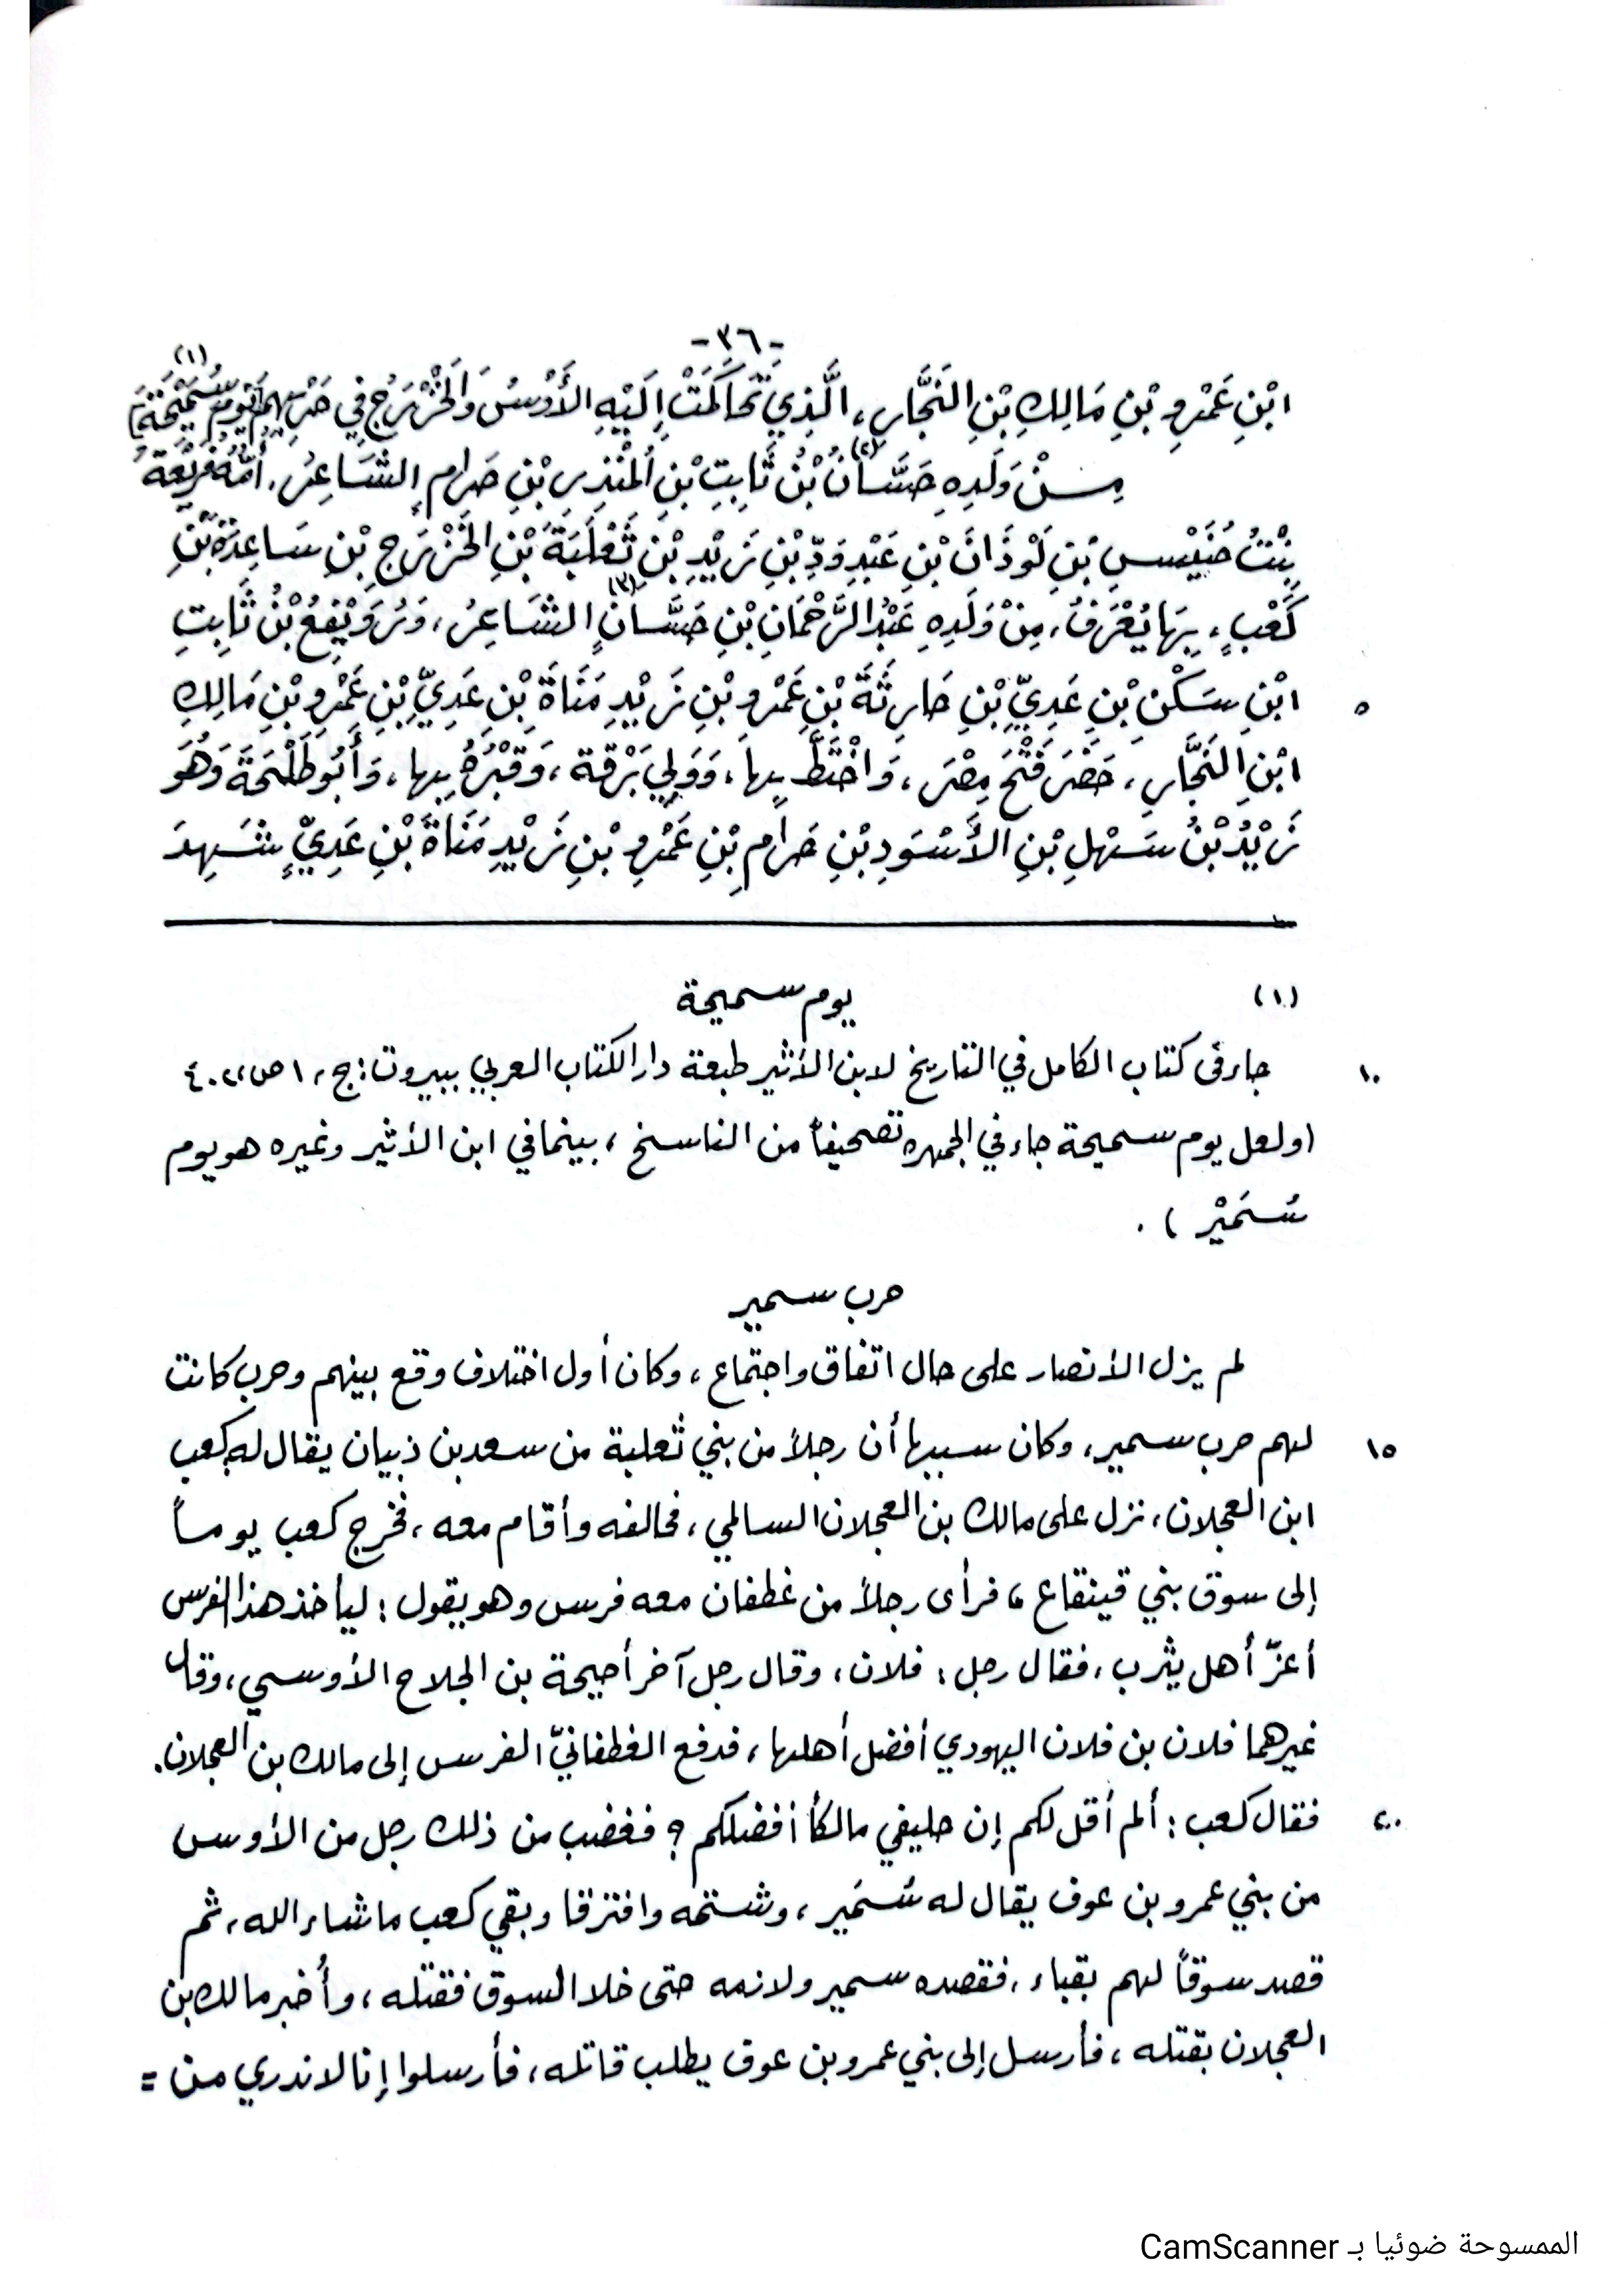 -٣٦-
ابْنِ عَمْرِو بْنِ مَالِكِ بْنِ النَّجَّارِ، الَّذِي تَحَاكَمَتْ إِلَيْهِ الأَوْسُ وَالخَزْرَجُ فِي حَرْبِهِمْ يَوْمَ سُمَيْحَةَ (١)
مِنْ وَلَدِهِ حَسَّانُ (٢) بْنُ ثَابِتِ بْنِ المُنْذِرِ بْنِ حَرَامٍ الشَّاعِرُ. أُمُّهُ فُرَيْعَةُ
بِنْتُ خُنَيْسِ بْنِ لَوْذَانَ بْنِ عَبْدِ وَدِّ بْنِ زَيْدِ بْنِ ثَعْلَبَةَ بْنِ الخَزْرَجِ بْنِ سَاعِدَةَ بْنِ
كَعْبٍ، بِهَا يُعْرَفُ، مِنْ وَلَدِهِ عَبْدُ الرَّحْمَانِ بْنِ حَسَّانٍ (٣) الشَّاعِرُ، وَرُوَيْفِعُ بْنُ ثَابِتِ
٥ ابْنِ سَكْنِ بْنِ عَدِيِّ بْنِ حَارِثَةَ بْنِ عَمْرِو بْنِ زَيْدِ مَنَاةَ بْنِ عَدِيِّ بْنِ عَمْرِو بْنِ مَالِكِ
ابْنِ النَّجَّارِ، حَضَرَ فَتْحَ مِصْرَ، وَاخْتَطَّ بِهاَ، وَوَلِيَ بَرْقَة، وَقَبْرُهُ بِها، وَأَبُو طَلْحَةَ وَهُوَ
زَيْدُ بْنُ سَهْلِ بْنِ الأَسْوَدِ بْنِ حَرَامِ بْنِ عَمْرِو بْنِ زَيْدِ مَنَاةَ بْنِ عَدِيٍّ شَهِدَ
(١) يوم سميحة
١٠ جاء في كتاب الكامل في التاريخ لابن الأثير طبعة دار الكتاب العربي ببيروت: ج، ١ ص، ٤٠٢
(ولعل يوم سميحة جاء في الجمهره تصحيفاً من الناسخ، بينما في ابن الأثير وغيره هو يوم
سُمَيْر).
حرب سمير
لم يزل الأنصار على حال اتفاق واجتماع، وكان أول اختلاف وقع بينهم وحرب كانت
١٥ لهم حرب سمير، وكان سببها أن رجلاً من بني ثعلبة من سعد بن ذبيان يقال له كعب
ابن العجلان، نزل على مالك بن العجلان السالمي، فحالفه وأقام معه، فخرج كعب يوماً
إلى سوق بني قينقاع، فرأى رجلاً من غطفان معه فرس وهو يقول: ليأخذ هذا الفرس
أعزّ أهل يثرب، فقال رجل: فلان، وقال رجل آخر أحيحة بن الجلاح الأوسي، وقال
غيرهما فلان بن فلان اليهودي أفضل أهلها، فدفع الغطفانيّ الفرس إلى مالك بن العجلان.
٢٠ فقال كعب: ألم أقل لكم إن حليفي مالكاً أفضلكم؟ فغضب من ذلك رجل من الأوس
من بني عمرو بن عوف يقال له سُمَير، وشتمه وافترقا وبقي كعب ما شاء الله، ثم
قصد سوقاً لهم بقباء، فقصده سمير ولازمه حتى خلا السوق فقتله، وأُخبر مالك بن
العجلان بقتله، فأرسل إلى بني عمرو بن عوف يطلب قاتله، فأرسلوا إنا لا ندري من =
الممسوحة ضوئيا بـ CamScanner